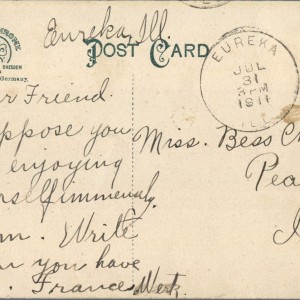 Eureka, Ill.
POST CARD
DRESDEN
Germany.
EUREKA
JUL
31
3 PM
1911
ILL.
r Friend.
ppose you
enjoying
rself immensely.
m. Write
you have
Frances
Miss. Bess C
Pea